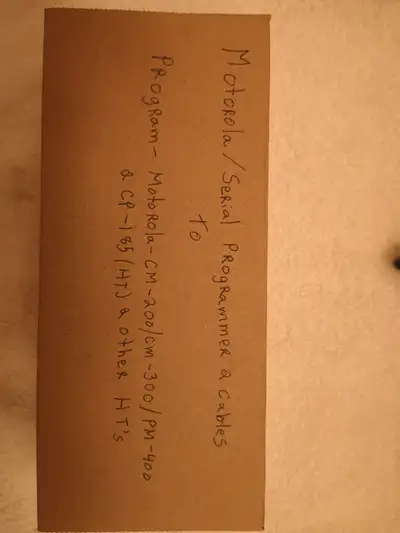 Motorola/Serial Programmer & Cables
To
Program- Motorola-CM-200/CM-300/PM-400
& CP-185(HT) & other HT's